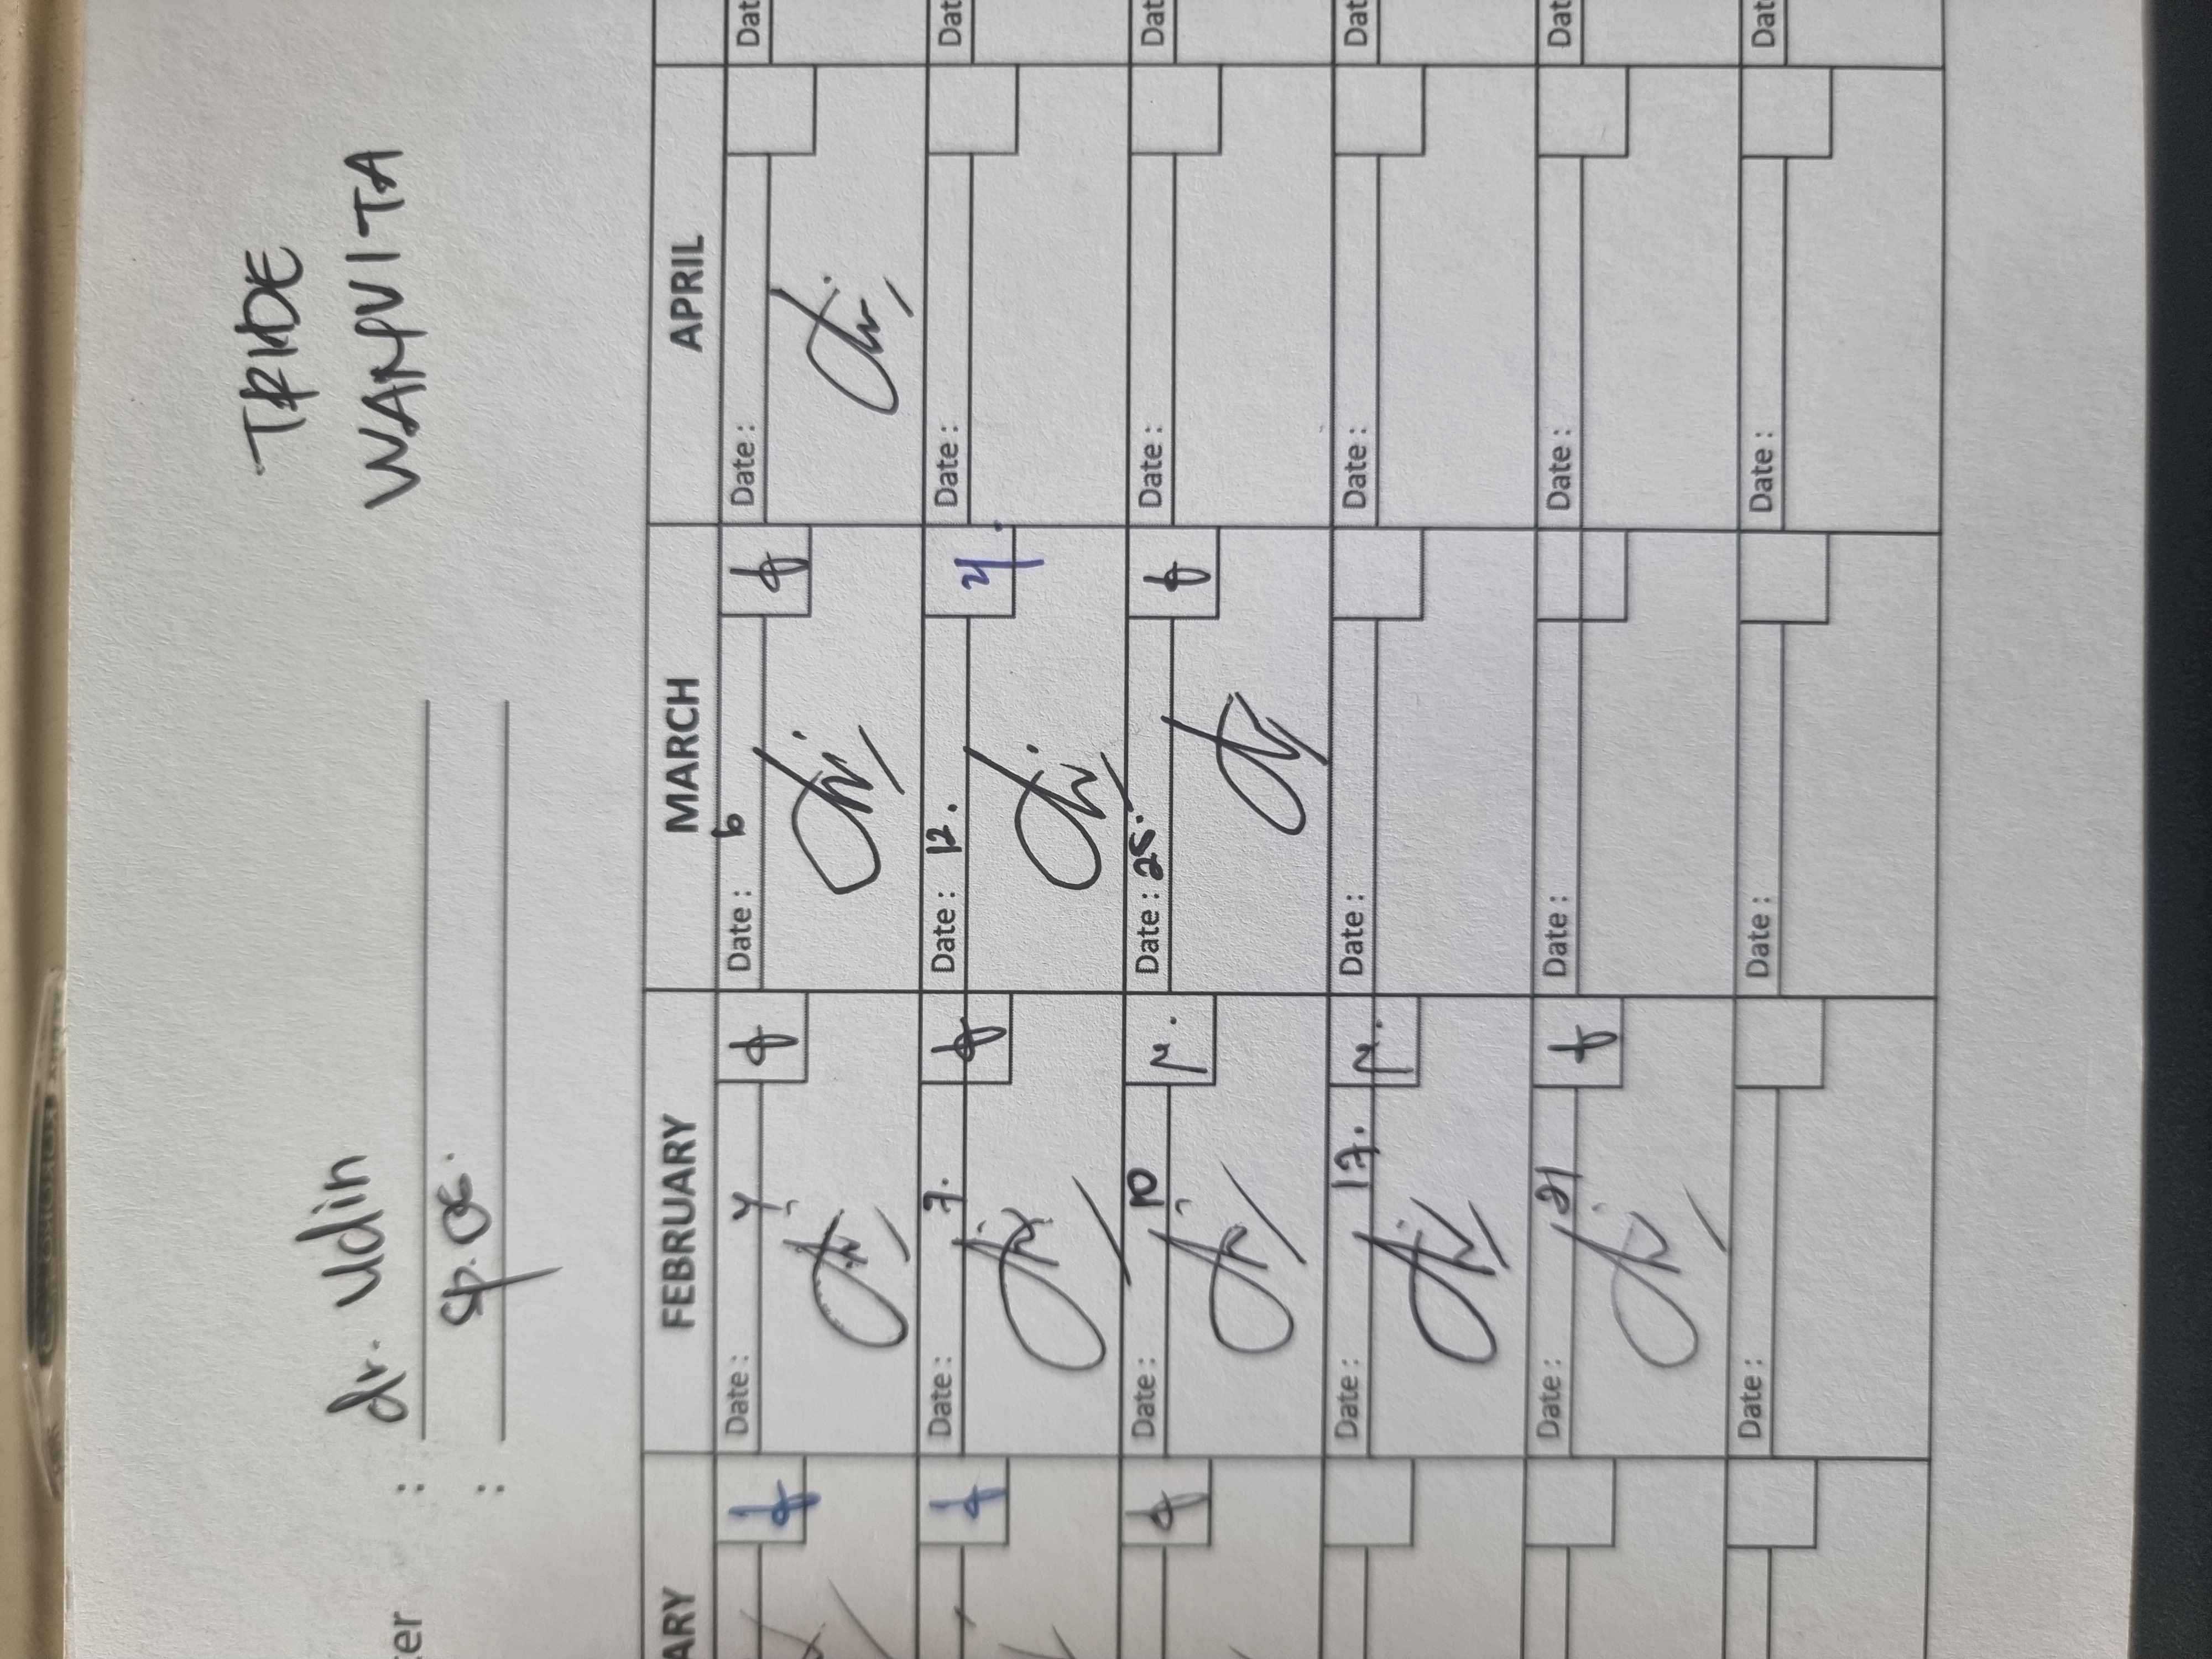 TRIDE
WANVITA
ter : dr. Udin
: Sp. OG.
ARY FEBRUARY MARCH APRIL
Date : 4 Date : 6 Date : Dat
Date : 7. Date : 12. Date : Dat
Date : 10 Date : 25. Date : Dat
Date : 17. Date : Date : Dat
Date : 21 Date : Date : Dat
Date : Date : Date : Dat